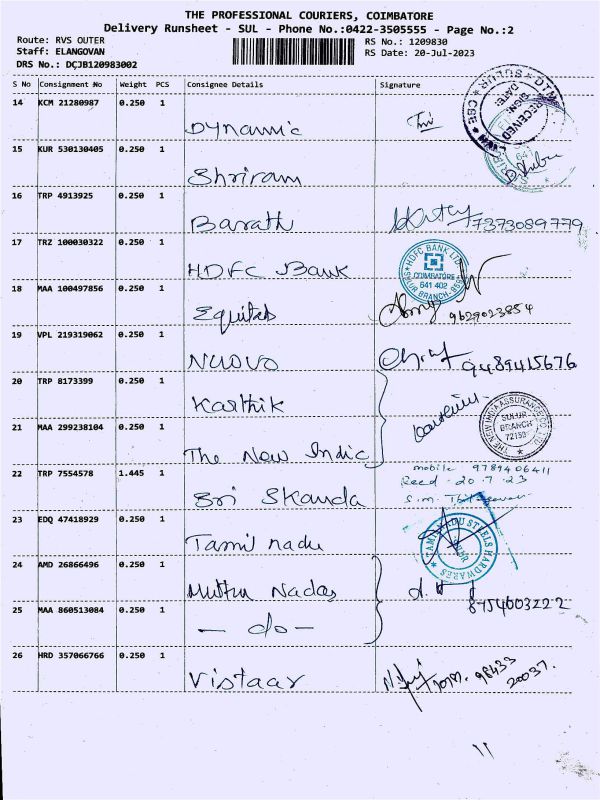 THE PROFESSIONAL COURIERS, COIMBATORE
Delivery Runsheet - SUL - Phone No.:0422-3505555 - Page No.:2
Route: RVS OUTER
RS No.: 1209830
Staff: ELANGOVAN
RS Date: 20-Jul-2023
DRS No.: DCJB120983002
S No Consignment No Weight PCS Consignee Details Signature
14 KCM 21280987 0.250 1
Dynamic
RECEIVED
SIGN:
DATE:
SULUR
15 KUR 530130405 0.250 1
Shriram
16 TRP 4913925 0.250 1
Barath 7373089779
17 TRZ 100030322 0.250 1
HDFC Bank
HDFC BANK LTD
COIMBATORE
641 402
SULUR BRANCH
18 MAA 100497856 0.250 1
Equitas 9629023854
19 VPL 219319062 0.250 1
Nuovo 9489415676
20 TRP 8173399 0.250 1
Karthik
21 MAA 299238104 0.250 1
The New Indic
THE NEW INDIA ASSURANCE CO. LTD.
SULUR
BRANCH
72153
22 TRP 7554578 1.445 1
mobile 9789406411
Recd. 20.7.23
Sri Skanda
23 EDQ 47418929 0.250 1
Tamil nadu
TAMIL NADU STEELS HARDWARES
SULUR
24 AMD 26866496 0.250 1
Muthu Nadar
8754603222
25 MAA 860513084 0.250 1
— do —
26 HRD 357066766 0.250 1
Vistaar 98433
20037.
11